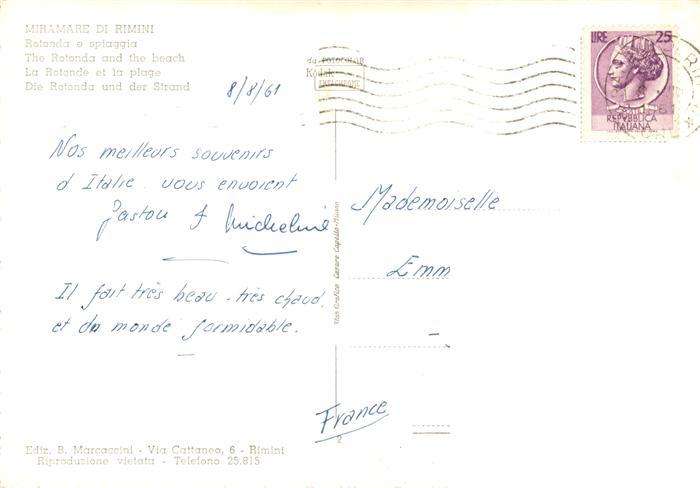 MIRAMARE DI RIMINI
Rotonda e spiaggia
The Rotonda and the beach
La Rotonde et la plage
Die Rotonda und der Strand
8/8/61
Kodak
LIRE 25
REPVBBLICA
ITALIANA
Nos meilleurs souvenirs
d'Italie. vous envoient
Gaston & Micheline
Il fait très beau - très chaud.
et du monde formidable.
Mademoiselle
Emm
France
2
Ediz. B. Marcaccini - Via Cattaneo, 6 - Rimini
Riproduzione vietata - Telefono 25.815